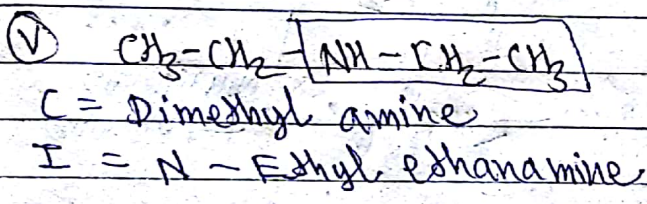 (V) CH3-CH2-NH-CH2-CH3
C = Dimethyl amine
I = N-Ethyl ethanamine